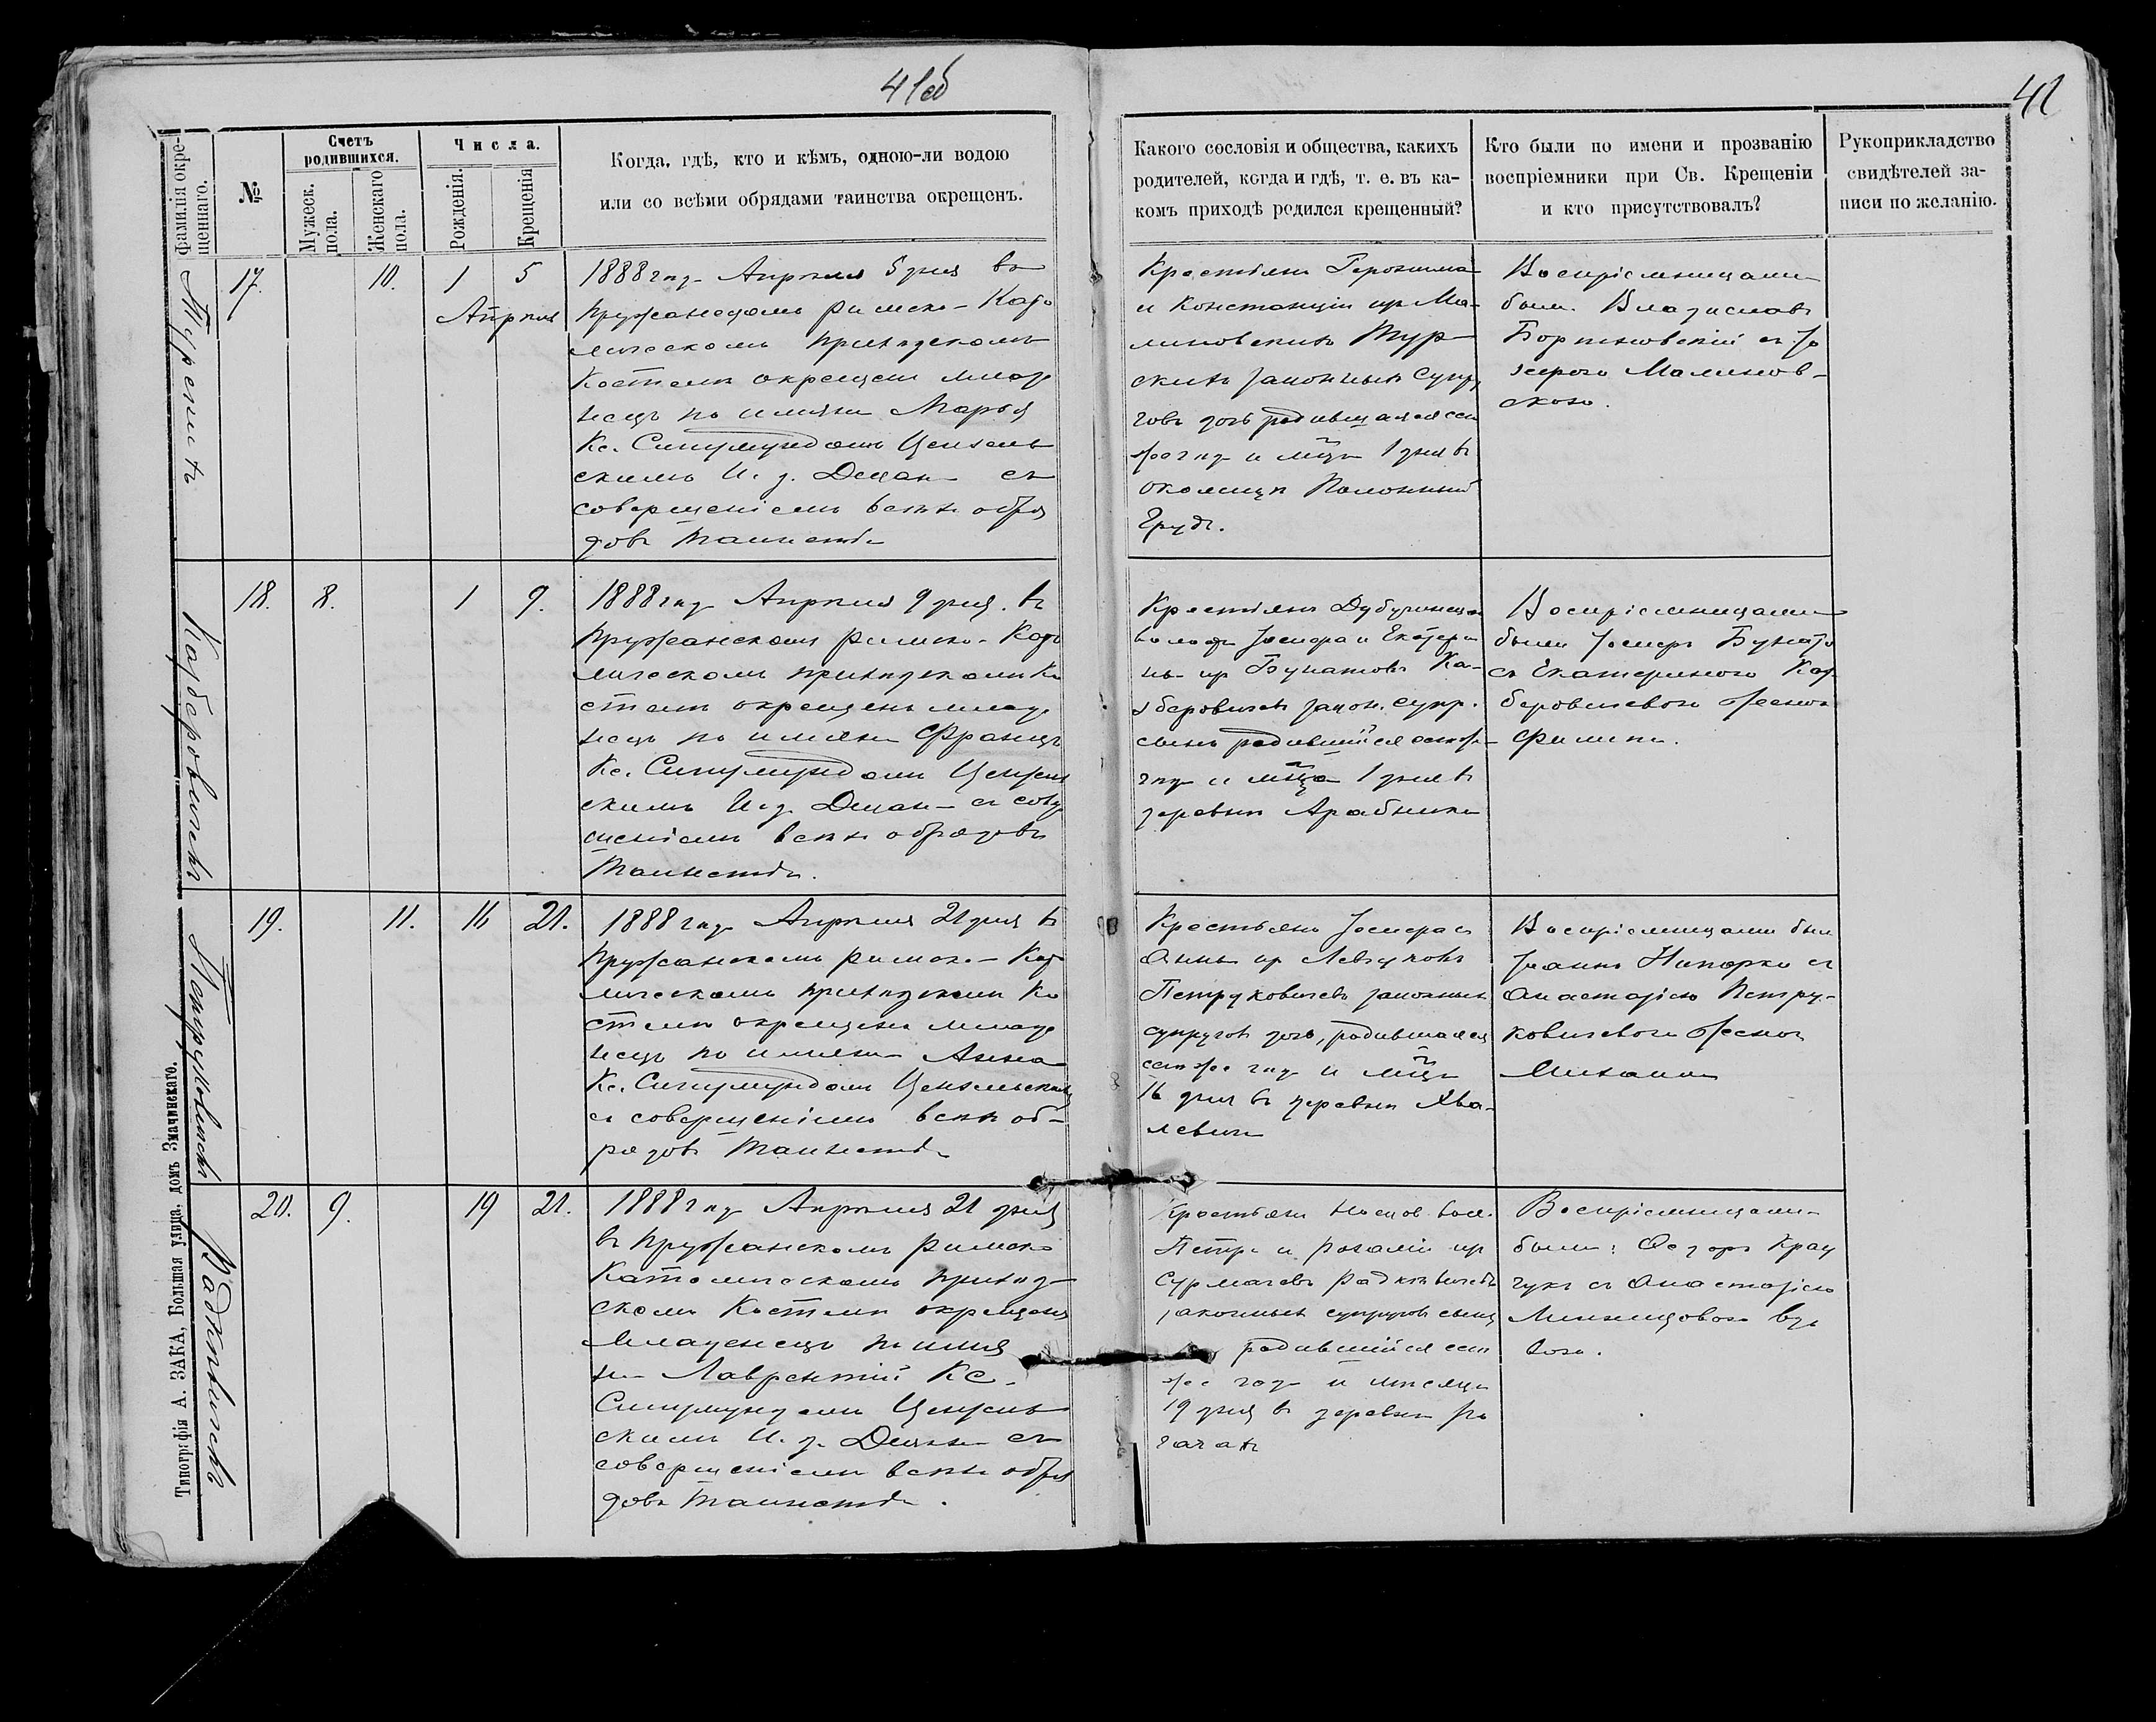 41об
42
Фамилія окре-
щеннаго.
№
Счетъ
родившихся.
Мужеск.
пола.
Женскаго
пола.
Числа.
Рожденія.
Крещенія
Когда, гдѣ, кто и кѣмъ, одною-ли водою
или со всѣми обрядами таинства окрещенъ.
Какого сословія и общества, какихъ
родителей, когда и гдѣ, т. е. въ ка-
комъ приходѣ родился крещенный?
Кто были по имени и прозванію
воспріемники при Св. Крещеніи
и кто присутствовалъ?
Рукоприкладство
свидѣтелей за-
писи по желанію.
17.
10.
1
5
Апрѣля
1888 года Апрѣля 5 дня во
Пружанскомъ Римско-Като
лическомъ приходскомъ
Костелѣ окрещенъ младе
нецъ по имени Марья
Кс. Сигизмундомъ
скимъ И. д. Декана съ
совершеніемъ всѣхъ обря
довъ Таинства
Крестьянъ Геронима
и Констанціи ур. Ма-
линовскихъ Тур-
скихъ законныхъ супру
говъ дочь родившаяся сего
же года и мца 1 дня въ
околицѣ
Грудъ.
Воспріемниками
были Владиславъ
съ Іо
зефою Малинов-
скою.
18.
8.
1
9.
Казберовичъ
1888 года Апрѣля 9 дня въ
Пружанскомъ Римско-Като
лическомъ приходскомъ Ко
стелѣ окрещенъ младе
нецъ по имени Францъ
Кс. Сигизмундомъ
скимъ И. д. Декана съ совер
шеніемъ всѣхъ обрядовъ
Таинства.
Крестьянъ
волости Іосифа и Екатери
ны ур. Ка-
зберовичей закон. супр.
сынъ родившійся сего же
года и мца 1 дня въ
деревни Арабники
Воспріемниками
были Іосифъ
съ Екатериною Каз
беровичевою женою
Филипа.
19.
11.
16
21.
Петруковичъ
1888 года Апрѣля 21 дня въ
Пружанскомъ Римско-Като
лическомъ приходскомъ Ко
стелѣ окрещенъ младе
нецъ по имени Анна
Кс. Сигизмундомъ
съ совершеніемъ всѣхъ об-
рядовъ Таинства
Крестьянъ Іосифа и
Анны ур.
Петруковичей законныхъ
супруговъ дочь, родившаяся
сего же года и мца
16 дня въ деревни Хва-
левичи
Воспріемниками были
Іоаннъ съ
Анастазіею Петру-
ковичевою женою
Михаила
20.
9.
19
21.
Радкѣвичъ
1888 года Апрѣля 21 дня
въ Пружанскомъ Римско
Католическомъ приход-
скомъ Костелѣ окрещенъ
младенецъ по имя
ни Лаврентій Кс.
Сигизмундомъ
скимъ И. д. Декана съ
совершеніемъ всѣхъ обря
довъ Таинства.
Крестьянъ вол.
Петра и Розаліи ур.
Радкѣвичей
законныхъ супруговъ сынъ
родившійся сего
же года и мѣсяца
19 дня въ деревни Ро
гачахъ
Воспріемниками
были: Ѳедоръ Крав
чукъ съ Анастазіею
вдо
вою.
Типографія А. ЗАКА, Большая улица. домъ Значинскаго.